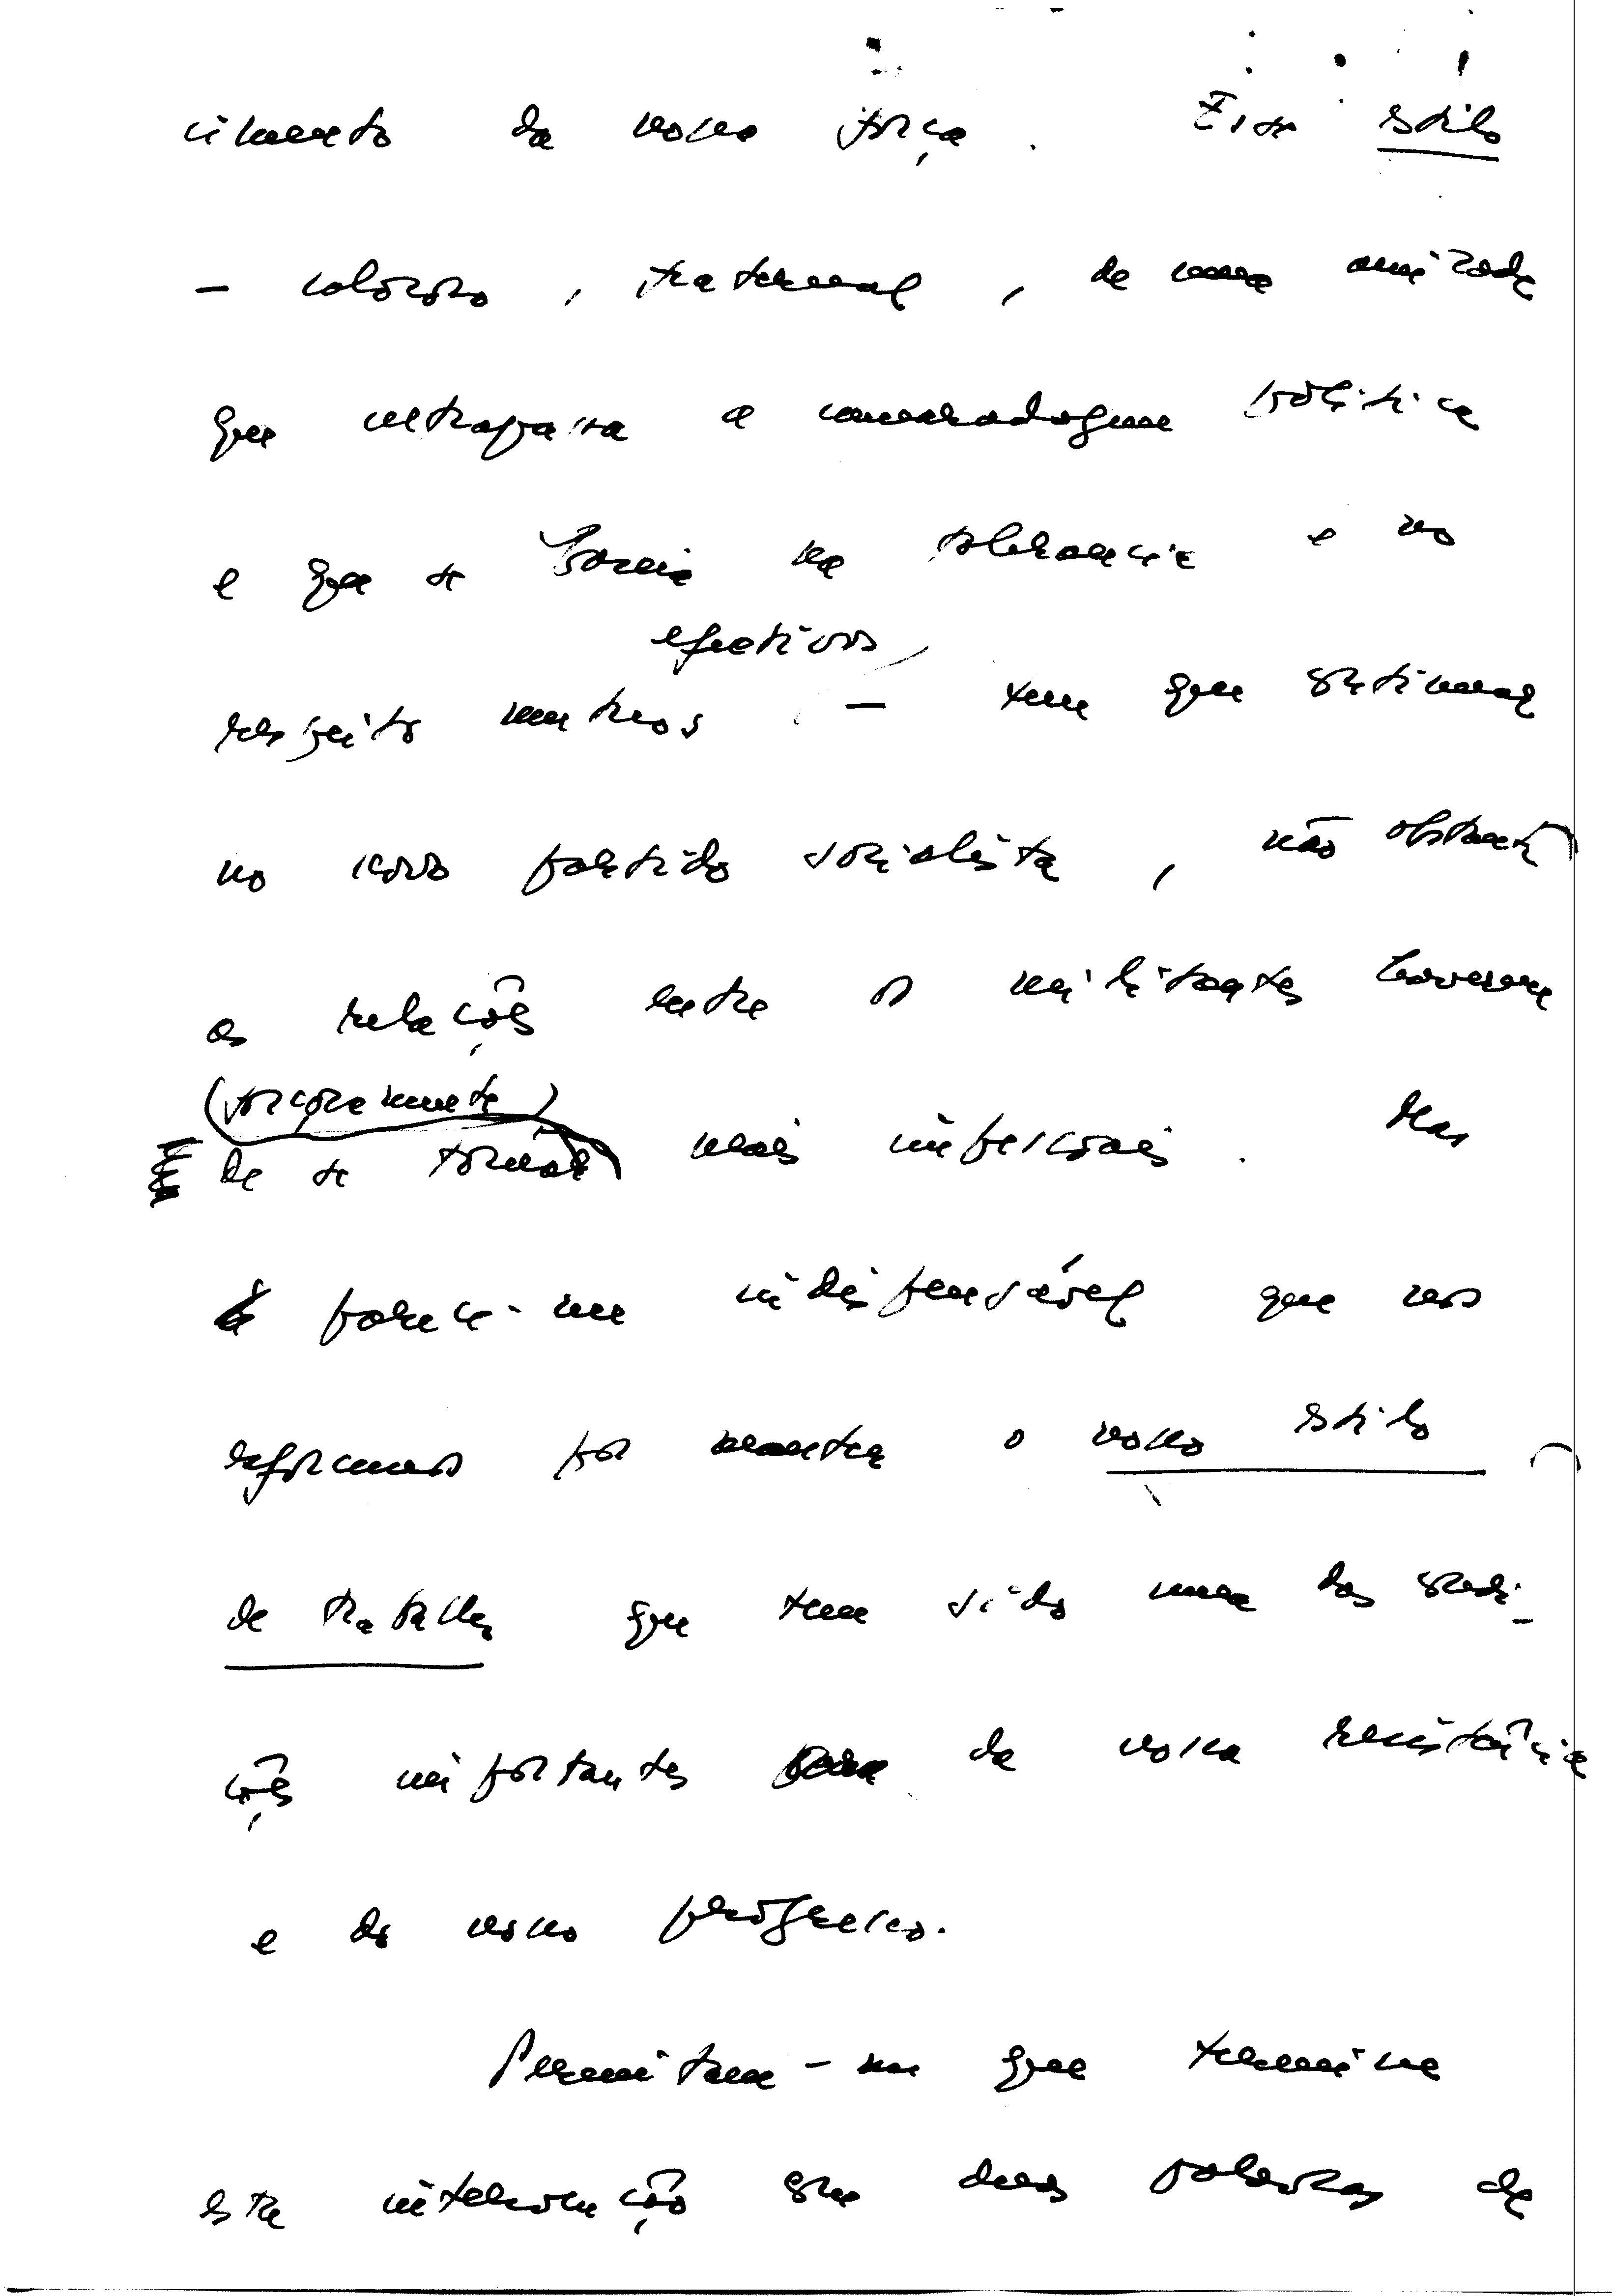 cimento da nossa força. Esse estilo
- caloroso, fraternal, de uma amizade
que ultrapassa a camaradagem política
e que se baseia na tolerancia e no
efectivos,
respeito mutuos - tem que continuar
no novo partido socialista, não obstante
as relações entre os militantes haverem
(forçosamente)
de se tornar mais impessoais. Mas
parece-me indispensável que nos
esforcemos por manter o nosso estilo
de trabalho que tem sido uma das condi-
ções importantes da nossa resistência
e do nosso progresso.
Permitam-me que termine
esta intervenção com duas palavras de